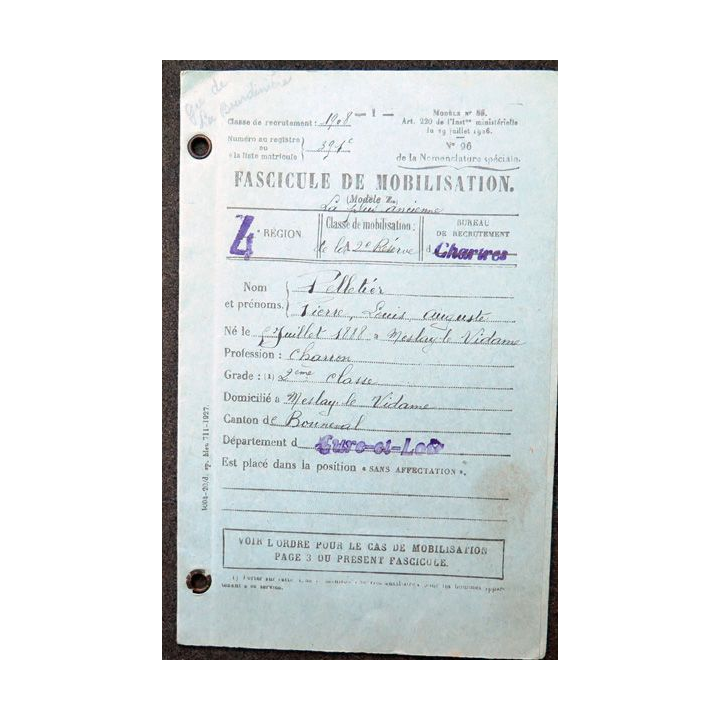 Gué de
la Bourdinière
Classe de recrutement : 1908 — 1 —
Numéro au registre
ou
à la liste matricule
391
MODÈLE Nº 86.
Art. 220 de l'Inst^on ministérielle
du 19 juillet 1926.
Nº 96
de la Nomenclature spéciale.
FASCICULE DE MOBILISATION.
(Modèle Z.)
4e RÉGION
Classe de mobilisation :
La plus ancienne
de la 2e Réserve
BUREAU
DE RECRUTEMENT
d Chartres
Nom Pelletier
et prénoms. Pierre, Louis Auguste
Né le Juillet 1888 à Meslay le Vidame
Profession : Charron
Grade : (1) 2ème classe
Domicilié à Meslay le Vidame
Canton de Bonneval
Département d Eure-et-Loir
Est placé dans la position « SANS AFFECTATION ».
VOIR L'ORDRE POUR LE CAS DE MOBILISATION
PAGE 3 DU PRÉSENT FASCICULE.
711-1927.